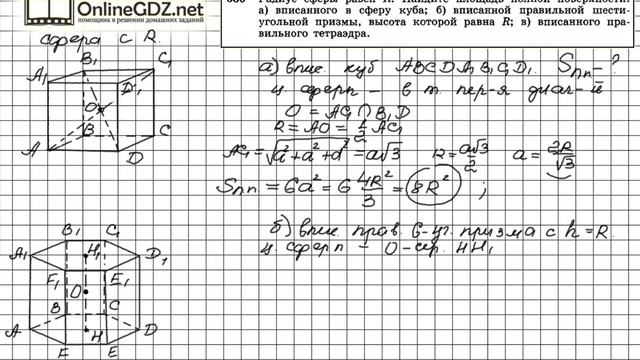 OnlineGDZ.net
помощник в решении домашних заданий
Радиус сферы равен R. Найдите площадь полной поверхности:
а) вписанного в сферу куба; б) вписанной правильной шести-
угольной призмы, высота которой равна R; в) вписанного пра-
вильного тетраэдра.
сфера с R.
а) впис. куб ABCDA₁B₁C₁D₁. Sпп - ?
ц. сферы - в т. пер-я диаг-ей
O = AC₁ ∩ B₁D
R = AO = 1/2 AC₁
AC₁ = √(a² + a² + a²) = a√3 R = a√3/2 a = 2R/√3
Sпп = 6a² = 6 4R²/3 = 8R² ;
б) впис. прав. 6-уг. призма с h = R.
ц. сферы - O - сер. HH₁
A₁ B₁ C₁ D₁
O
A B C D
B₁ C₁
A₁ H₁ D₁
F₁ E₁
O
B C
A H D
F E